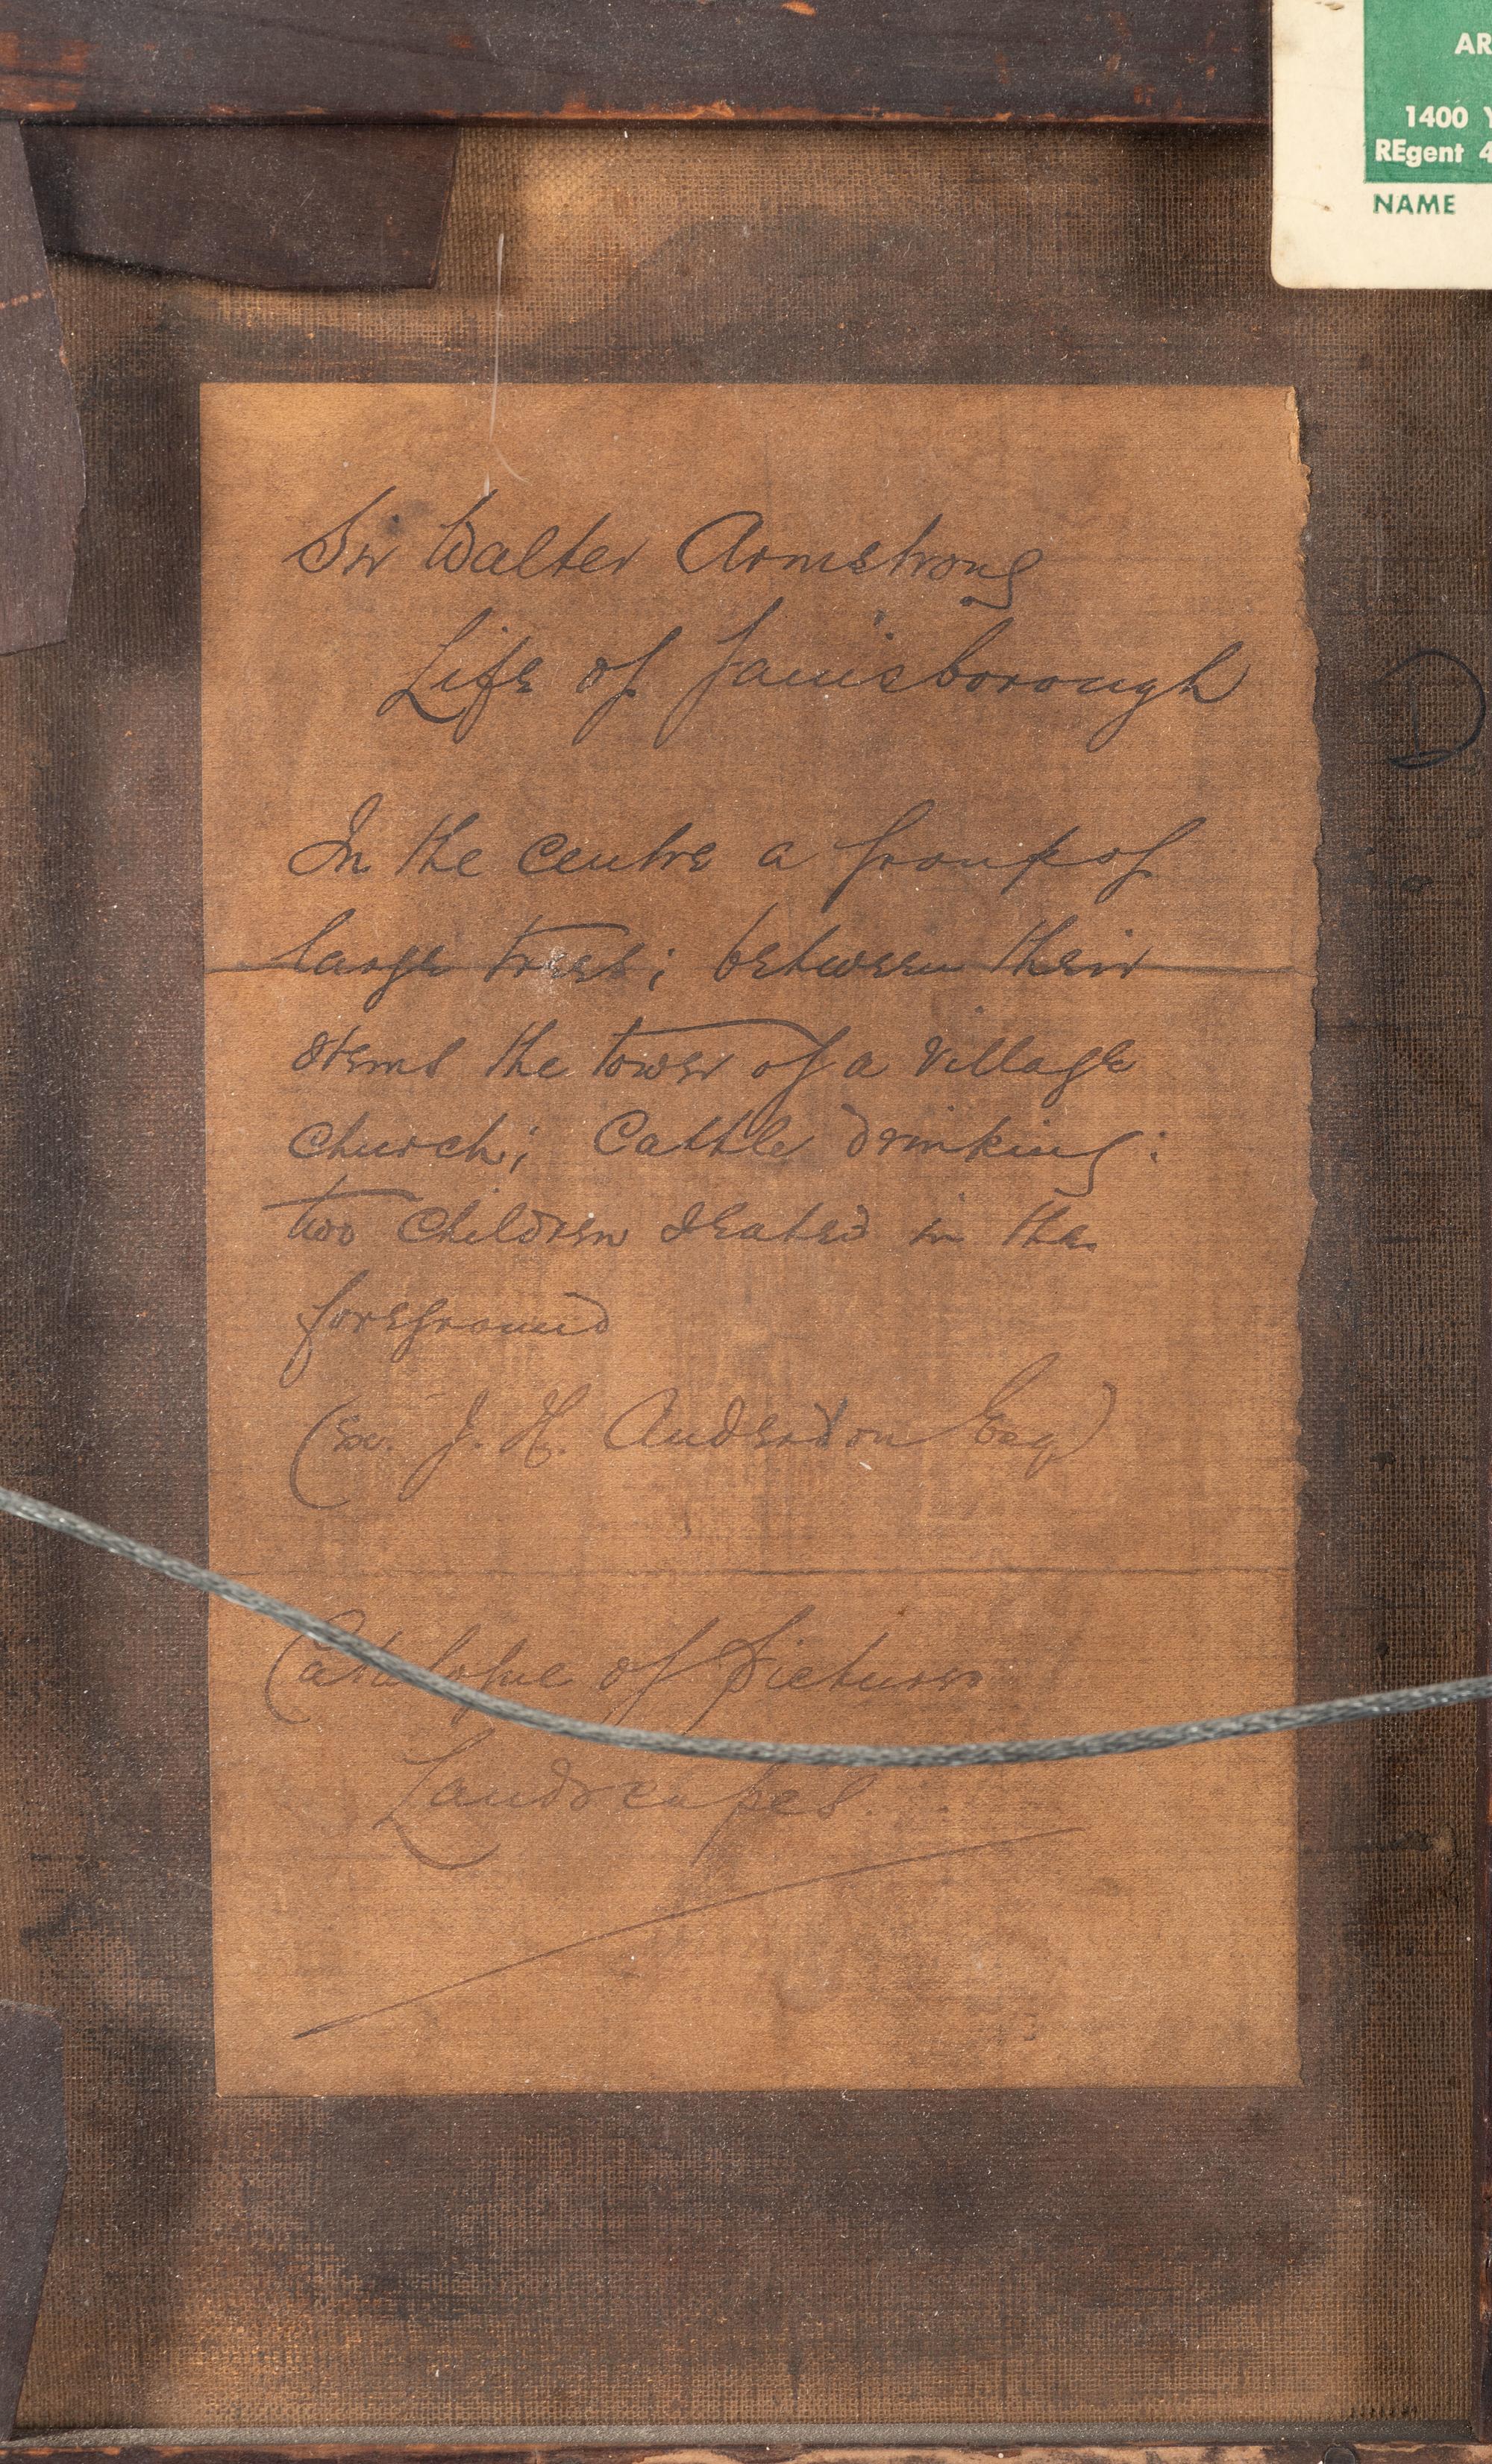 AR
1400 Y
REgent 4
NAME
Sir Walter Armstrong
Life of Gainsborough
In the centre a group of
large trees; between their
stems the tower of a village
church; Cattle drinking:
two Children seated in the
foreground
(Ex. J. H. Anderdon Esq)
Catalogue of Pictures
Landscapes.
D